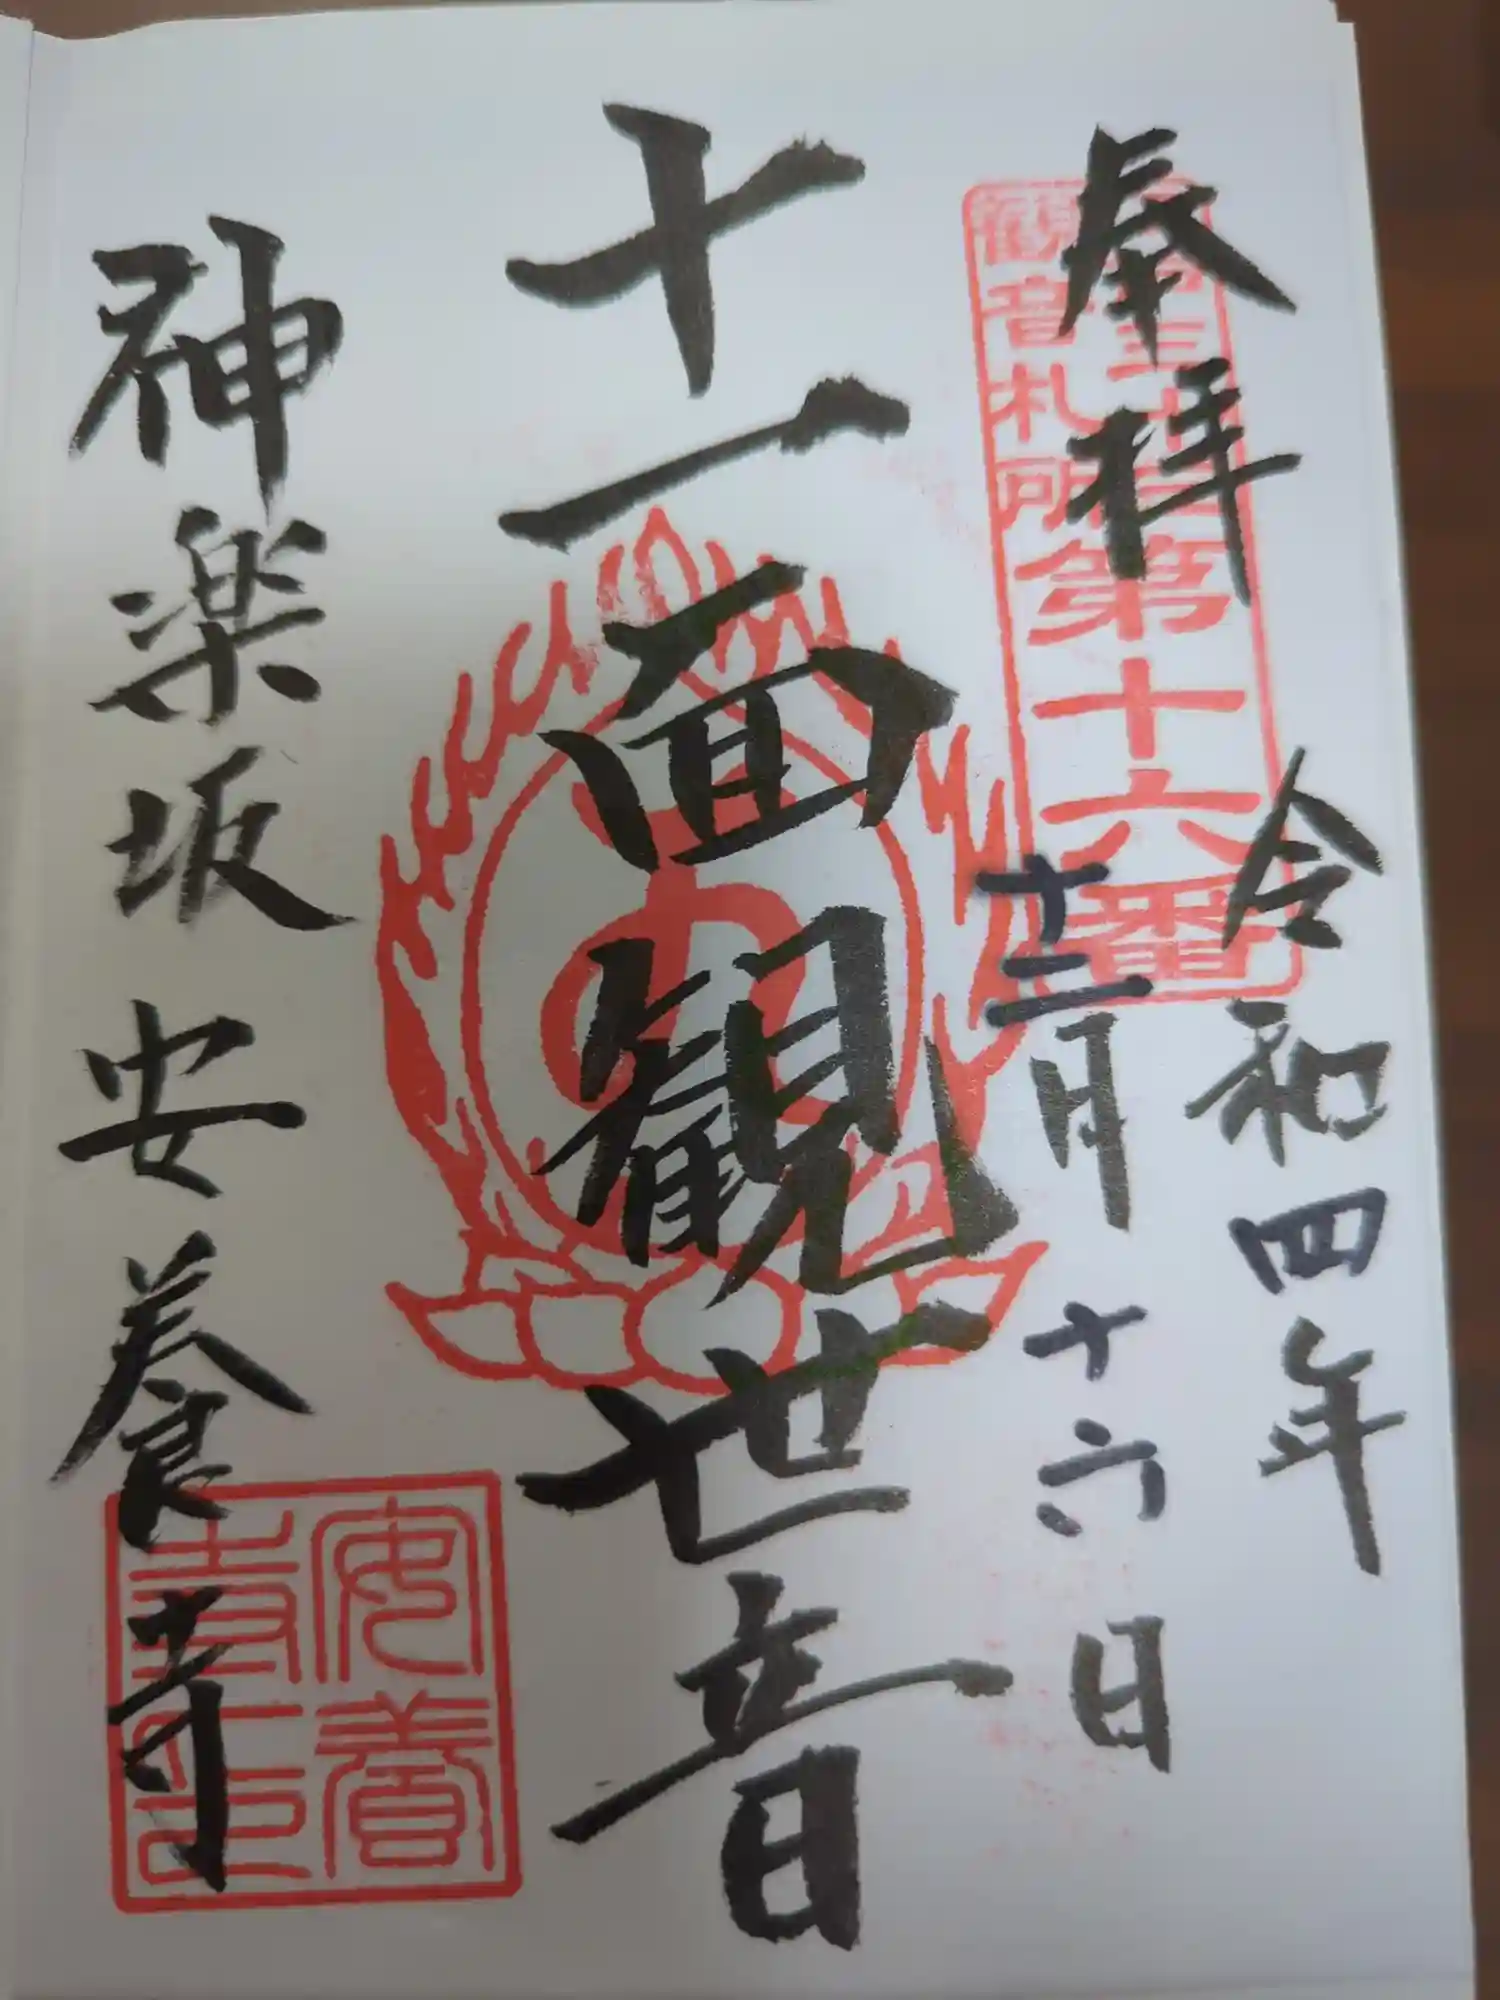 奉拝
令和四年
十二月十六日
観音札所第十六番
十一面観世音
神楽坂安養寺
安養
寺印